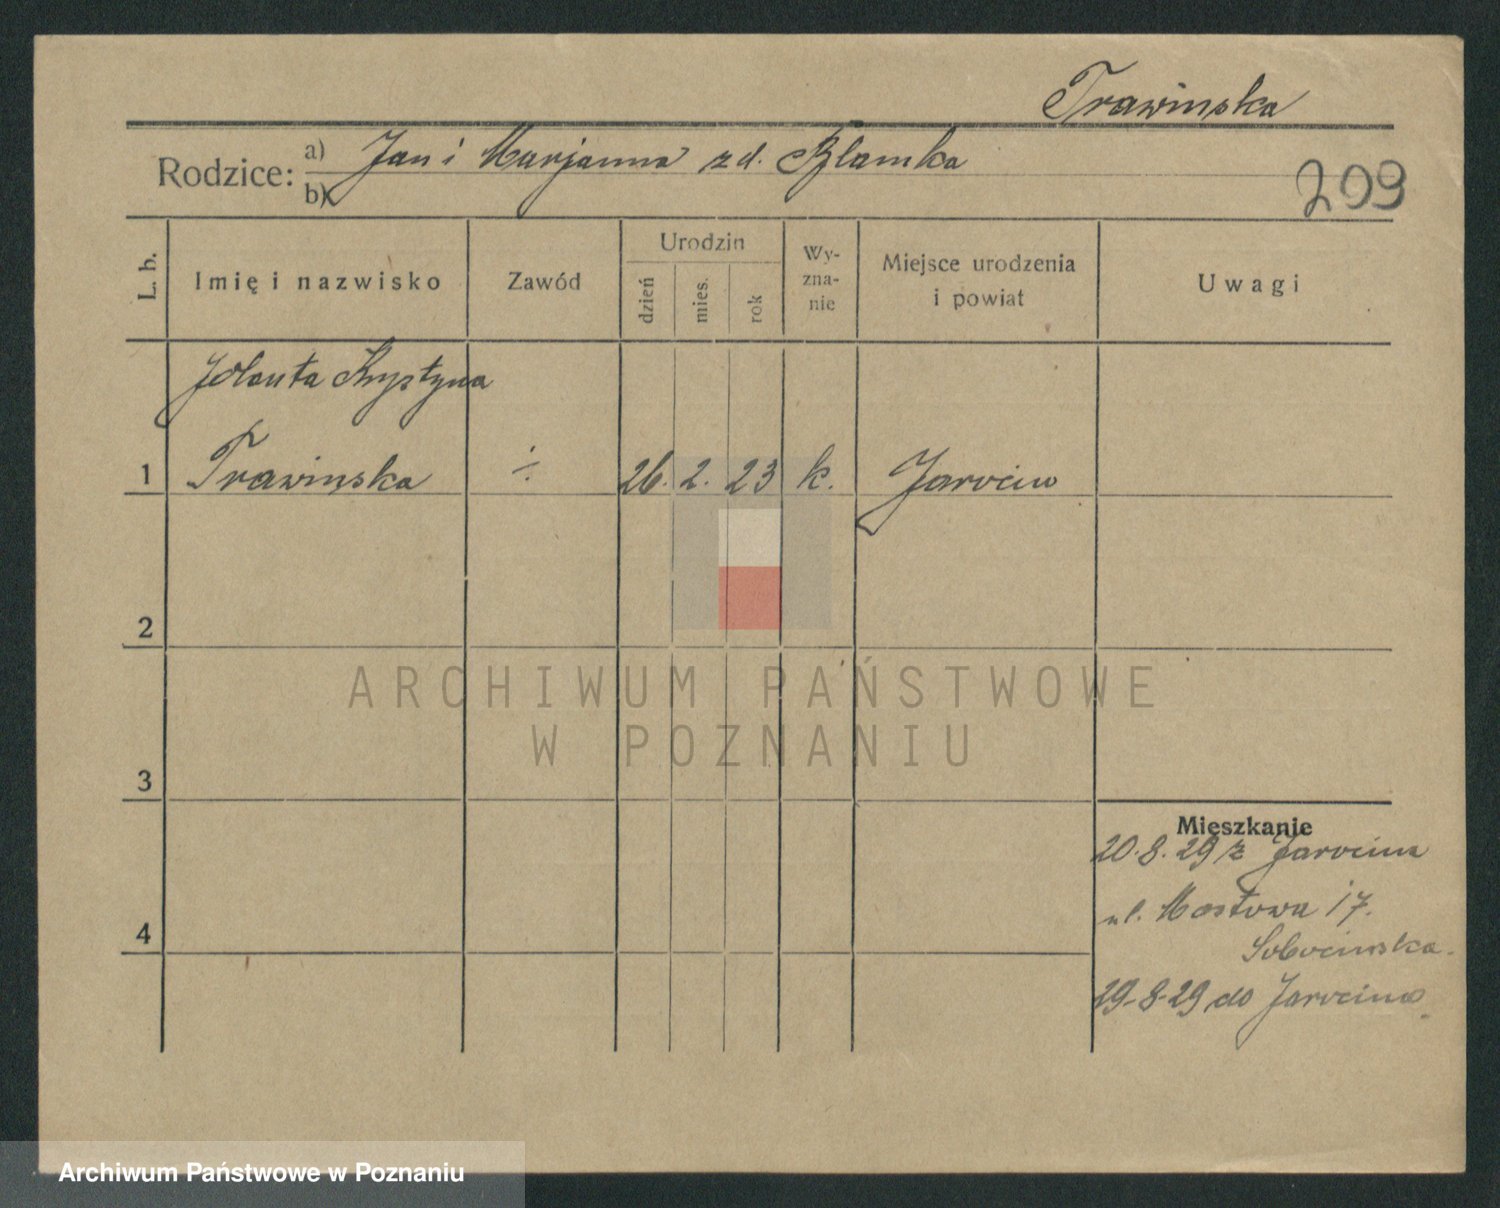 Trawinska
Rodzice: a) Jan i Marjanna zd.
b)
209
L. b.
Imię i nazwisko
Zawód
Urodzin
dzień
mies.
rok
Wy-
zna-
nie
Miejsce urodzenia
i powiat
Uwagi
Jolanta Krystyna
1 Trawinska ÷ 26. 2. 23 k. Jarocin
2
ARCHIWUM PAŃSTWOWE
W POZNANIU
3
Mieszkanie
20.8.29 z Jarocina
ul. Mostowa 17.
4
Sobocinska.
29-8-29 do Jarocina.
Archiwum Państwowe w Poznaniu